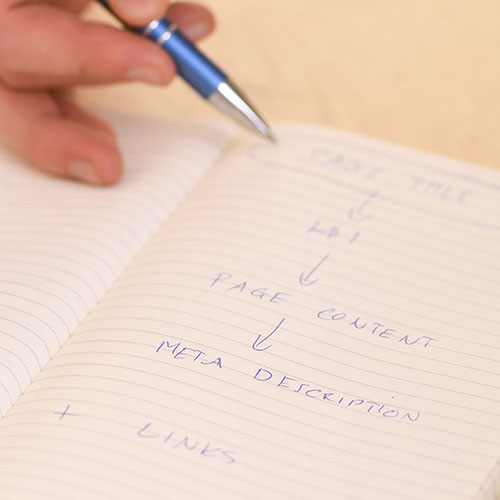 PAGE TITLE
PAGE CONTENT
META DESCRIPTION
+ LINKS